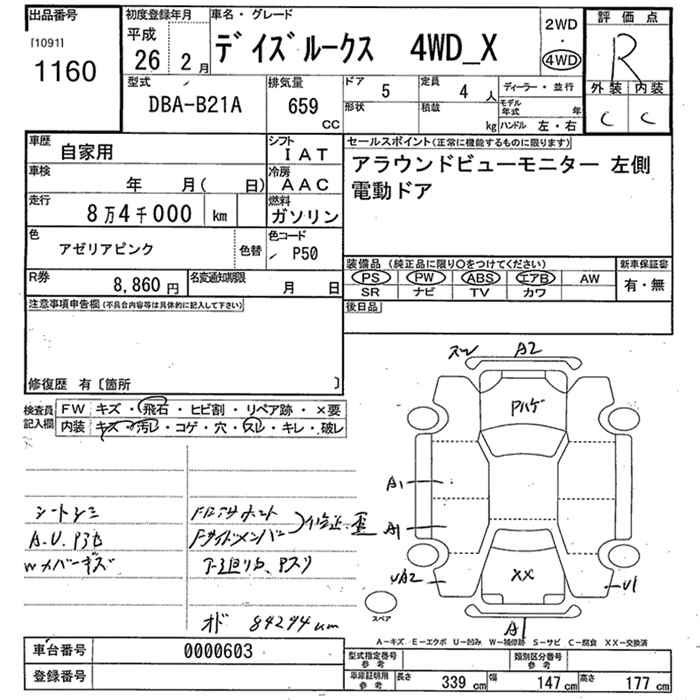 出品番号
[1091]
1160
初度登録年月
平成
26 2月
車名・グレード
デイズルークス 4WD_X
2WD
・
4WD
評価点
R
外装 内装
C C
型式
DBA-B21A
排気量
659
CC
ドア
5
形状
定員
4 人
積載
kg
ディーラー・並行
モデル年式 年
ハンドル 左・右
車歴
自家用
シフト
IAT
車検
年 月( 日)
冷房
AAC
走行
8万4千000 km
燃料
ガソリン
色
アゼリアピンク
色替
色コード
P50
R券
8,860 円
名変通知期限
月 日
セールスポイント(正常に機能するものに限ります)
アラウンドビューモニター 左側
電動ドア
装備品 (純正品に限り○をつけてください)
PS PW ABS エアB AW
SR ナビ TV カワ
新車保証書
有・無
後日品
注意事項申告欄(不具合内容等は具体的に記入して下さい)
修復歴 有〔箇所 〕
検査員
記入欄
FW キズ・飛石・ヒビ割・リペア跡・×要
内装 キズ・汚レ・コゲ・穴・スレ・キレ・破レ
シートシミ
Wメバーキズ
Fサイドメンバー
修正、歪
オド 84294km
A2
Pハゲ
A1
A1
UA2
XX
U1
A1
スペア
A-キズ E-エクボ U-凹み W-補修跡 S-サビ C-腐食 XX-交換済
車台番号
0000603
登録番号
型式指定番号
参考
類別区分番号
参考
車庫証明用
参考
長さ 339 cm 幅 147 cm 高さ 177 cm